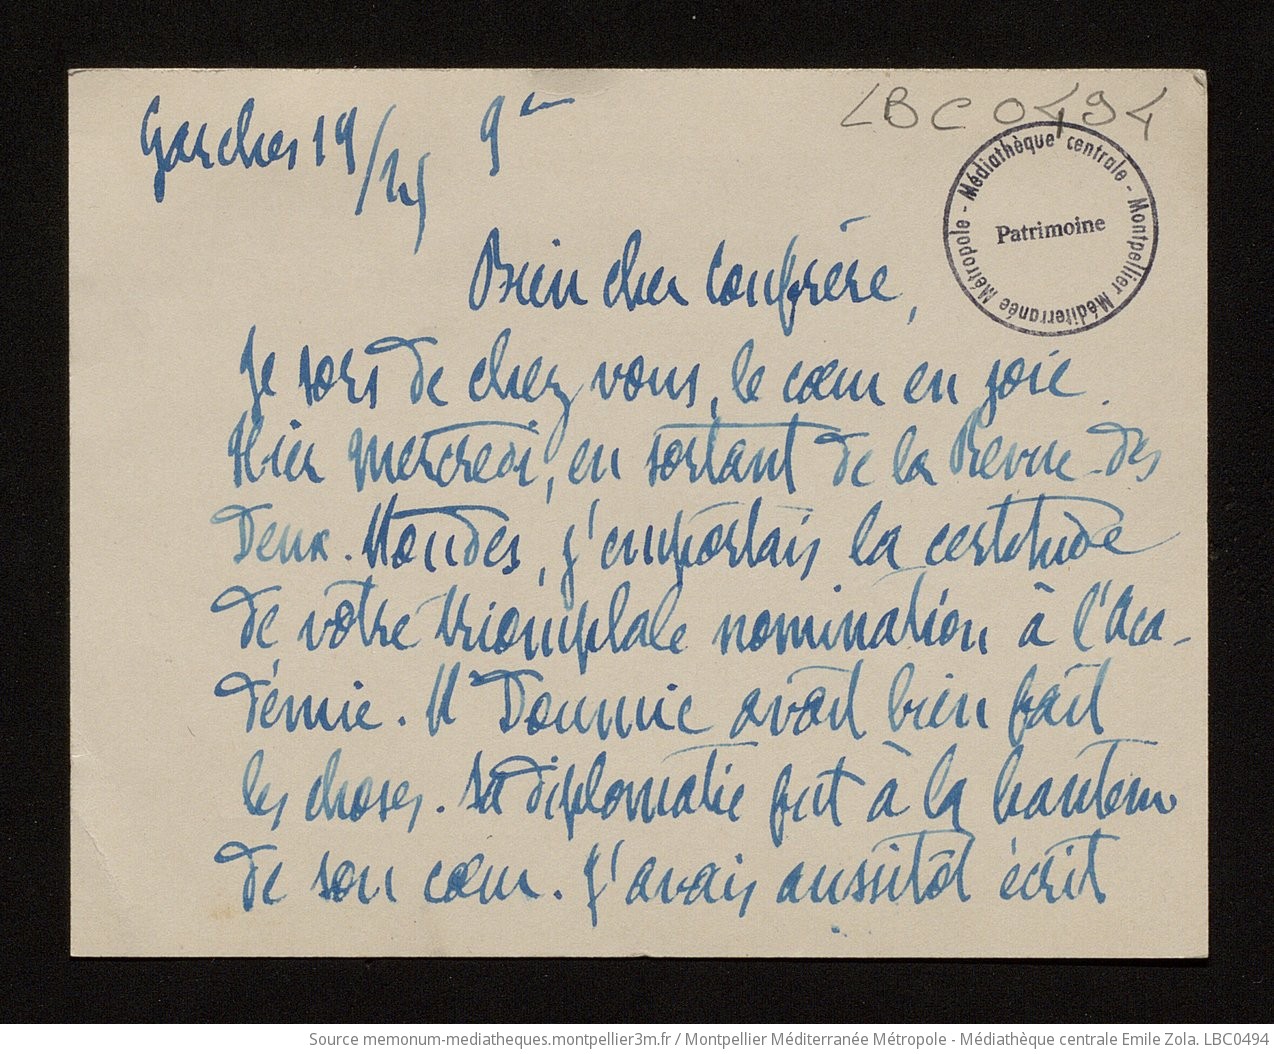 LBC0494
Garches 19/25 9bre
Médiathèque centrale - Montpellier Méditerranée Métropole -
Patrimoine
Bien cher Confrère,
Je sors de chez vous, le cœur en joie.
Hier Mercredi, en sortant de la Revue des
Deux-Mondes, j'emportais la certitude
de votre triomphale nomination à l'Aca-
démie. Mr Doumic avait bien fait
les choses. Sa diplomatie fut à la hauteur
de son cœur. J'avais aussitôt écrit
Source memonum-mediatheques.montpellier3m.fr / Montpellier Méditerranée Métropole - Médiathèque centrale Emile Zola. LBC0494